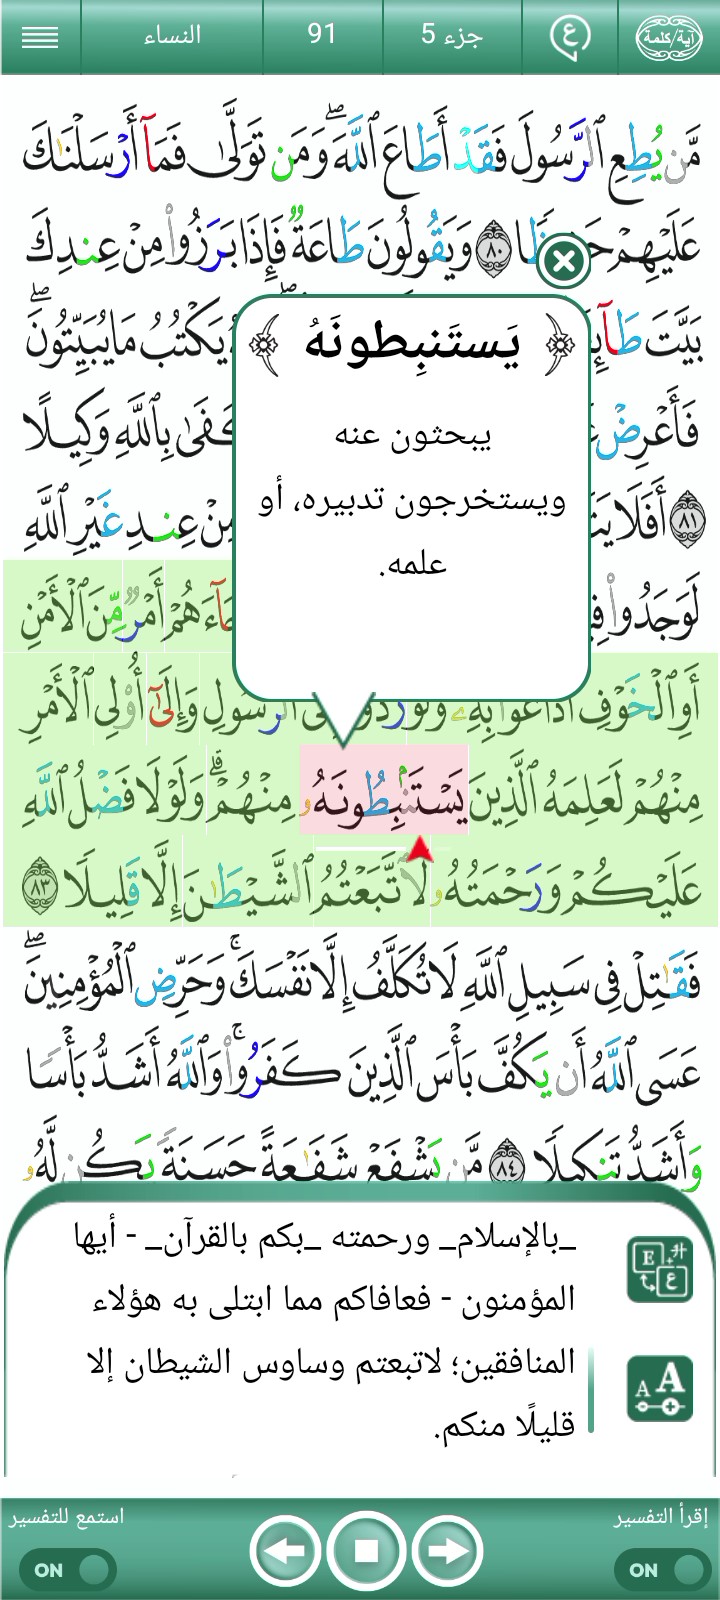 آية/كلمة ع جزء 5 91 النساء
مَّن يُطِعِ ٱلرَّسُولَ فَقَدْ أَطَاعَ ٱللَّهَ ۖ وَمَن تَوَلَّىٰ فَمَآ أَرْسَلْنَٰكَ
عَلَيْهِمْ ٨٠ وَيَقُولُونَ طَاعَةٌ فَإِذَا بَرَزُوا۟ مِنْ عِندِكَ
بَيَّتَ يَكْتُبُ مَا يُبَيِّتُونَ ۖ
فَأَعْرِضْ بِٱللَّهِ وَكِيلًا
٨١ أَفَلَا مِنْ عِندِ غَيْرِ ٱللَّهِ
﴿ يَستَنبِطونَهُ ﴾
يبحثون عنه
ويستخرجون تدبيره، أو
علمه.
لَوَجَدُوا۟ أَمْرٌ مِّنَ ٱلْأَمْنِ
أَوِ ٱلْخَوْفِ أَذَاعُوا۟ بِهِۦ وَلَوْ رَدُّوهُ إِلَى ٱلرَّسُولِ وَإِلَىٰٓ أُو۟لِى ٱلْأَمْرِ
مِنْهُمْ لَعَلِمَهُ ٱلَّذِينَ يَسْتَنۢبِطُونَهُۥ مِنْهُمْ ۗ وَلَوْلَا فَضْلُ ٱللَّهِ
عَلَيْكُمْ وَرَحْمَتُهُۥ لَٱتَّبَعْتُمُ ٱلشَّيْطَٰنَ إِلَّا قَلِيلًا ٨٣
فَقَٰتِلْ فِى سَبِيلِ ٱللَّهِ لَا تُكَلَّفُ إِلَّا نَفْسَكَ ۚ وَحَرِّضِ ٱلْمُؤْمِنِينَ ۖ
عَسَى ٱللَّهُ أَن يَكُفَّ بَأْسَ ٱلَّذِينَ كَفَرُوا۟ ۚ وَٱللَّهُ أَشَدُّ بَأْسًا
وَأَشَدُّ تَنكِيلًا ٨٤ مَّن يَشْفَعْ شَفَٰعَةً حَسَنَةً يَكُن لَّهُۥ
_بالإسلام_ ورحمته _بكم بالقرآن_ - أيها
المؤمنون - فعافاكم مما ابتلى به هؤلاء
المنافقين؛ لاتبعتم وساوس الشيطان إلا
قليلًا منكم.
إقرأ التفسير استمع للتفسير
ON ON